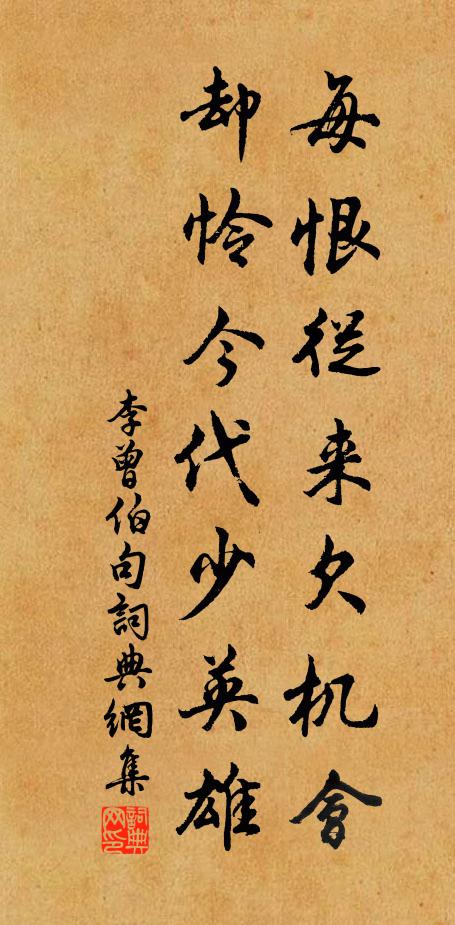 每恨從来欠机會
却怜今代少英雄
李曾伯句詞典網集
詞典網印